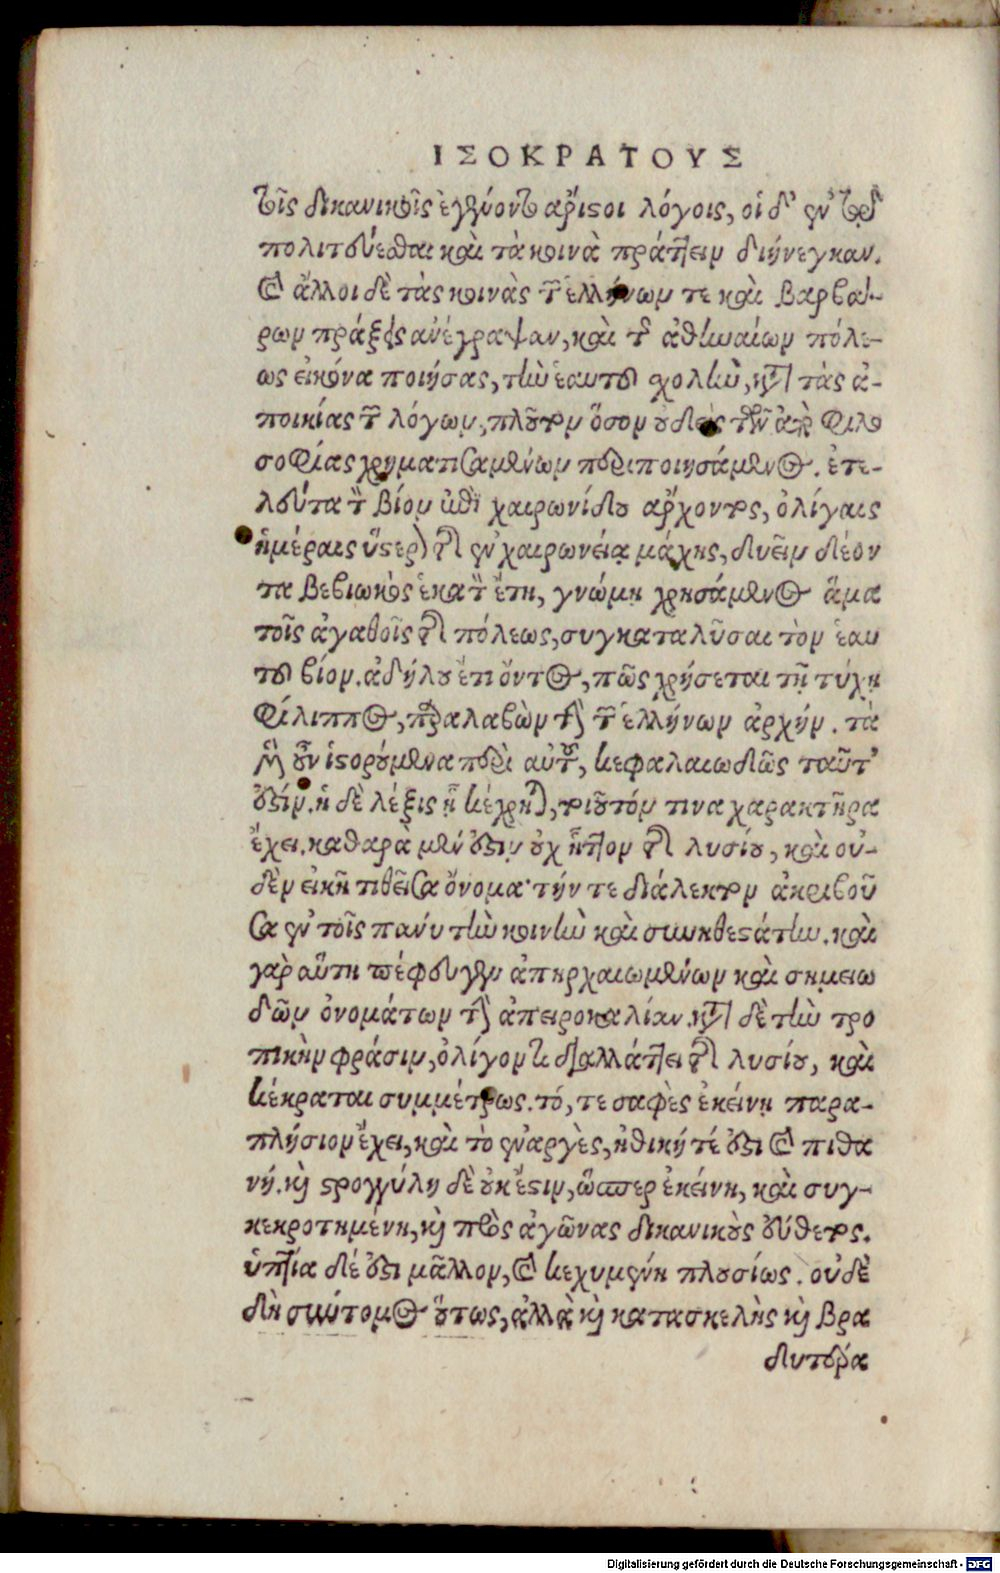 ΙΣΟΚΡΑΤΟΥΣ
τοῖς δικανικοῖς ἐγένοντο ἄριστοι λόγοις, οἱ δ' ἐν τῷ
πολιτεύεσθαι καὶ τὰ κοινὰ πράττειν διήνεγκαν.
καὶ ἄλλοι δὲ τὰς κοινὰς τῶν ἑλλήνων τε καὶ βαρβά-
ρων πράξεις ἀνέγραψαν, καὶ τῆς ἀθηναίων πόλε-
ως εἰκόνα ποιήσας, τὴν ἑαυτοῦ σχολὴν, κατὰ τὰς ἀ-
ποικίας τῶν λόγων, πλοῦτον ὅσον οὐδεὶς τῶν ἀπὸ φιλο
σοφίας χρηματισαμένων περιποιησάμενος. ἐτε-
λεύτα τὸν βίον ἐπὶ χαιρωνίδου ἄρχοντος, ὀλίγαις
ἡμέραις ὕστερον τῆς ἐν χαιρωνείᾳ μάχης, δυεῖν δέον
τα βεβιωκὸς ἑκατὸν ἔτη, γνώμῃ χρησάμενος ἅμα
τοῖς ἀγαθοῖς τῆς πόλεως, συγκαταλῦσαι τὸν ἑαυ
τοῦ βίον. ἀδήλου ἔτι ὄντος, πῶς χρήσεται τῇ τύχῃ
φίλιππος, παραλαβὼν τὴν τῶν ἑλλήνων ἀρχήν. τὰ
μὲν οὖν ἱστορούμενα περὶ αὐτοῦ, κεφαλαιωδῶς ταῦτ'
ἐστίν. ἡ δὲ λέξις ᾗ κέχρηται, τοιοῦτόν τινα χαρακτῆρα
ἔχει. καθαρὰ μέν ἐστιν οὐχ ἧττον τῆς λυσίου, καὶ οὐ-
δὲν εἰκῆ τιθεῖσα ὄνομα· τήν τε διάλεκτον ἀκριβοῦ
σα ἐν τοῖς πάνυ τὴν κοινὴν καὶ συνηθεστάτην. καὶ
γὰρ αὕτη πέφευγεν ἀπηρχαιωμένων καὶ σημειω
δῶν ὀνομάτων τὴν ἀπειροκαλίαν. κατὰ δὲ τὴν τρο
πικὴν φράσιν, ὀλίγον τι διαλλάττει τῆς λυσίου, καὶ
κέκραται συμμέτρως. τό, τε σαφὲς ἐκείνῃ παρα-
πλήσιον ἔχει, καὶ τὸ ἐναργὲς, ἠθική τέ ἐστι καὶ πιθα
νή. καὶ στρογγύλη δὲ οὐκ ἔστιν, ὥσπερ ἐκείνη, καὶ συγ-
κεκροτημένη, καὶ πρὸς ἀγῶνας δικανικοὺς εὔθετος.
ὑπτία δέ ἐστι μᾶλλον, καὶ κεχυμένη πλουσίως. οὐδὲ
δὴ σύντομος οὕτως, ἀλλὰ καὶ κατασκελὴς καὶ βρα
δυτέρα
Digitalisierung gefördert durch die Deutsche Forschungsgemeinschaft - DFG